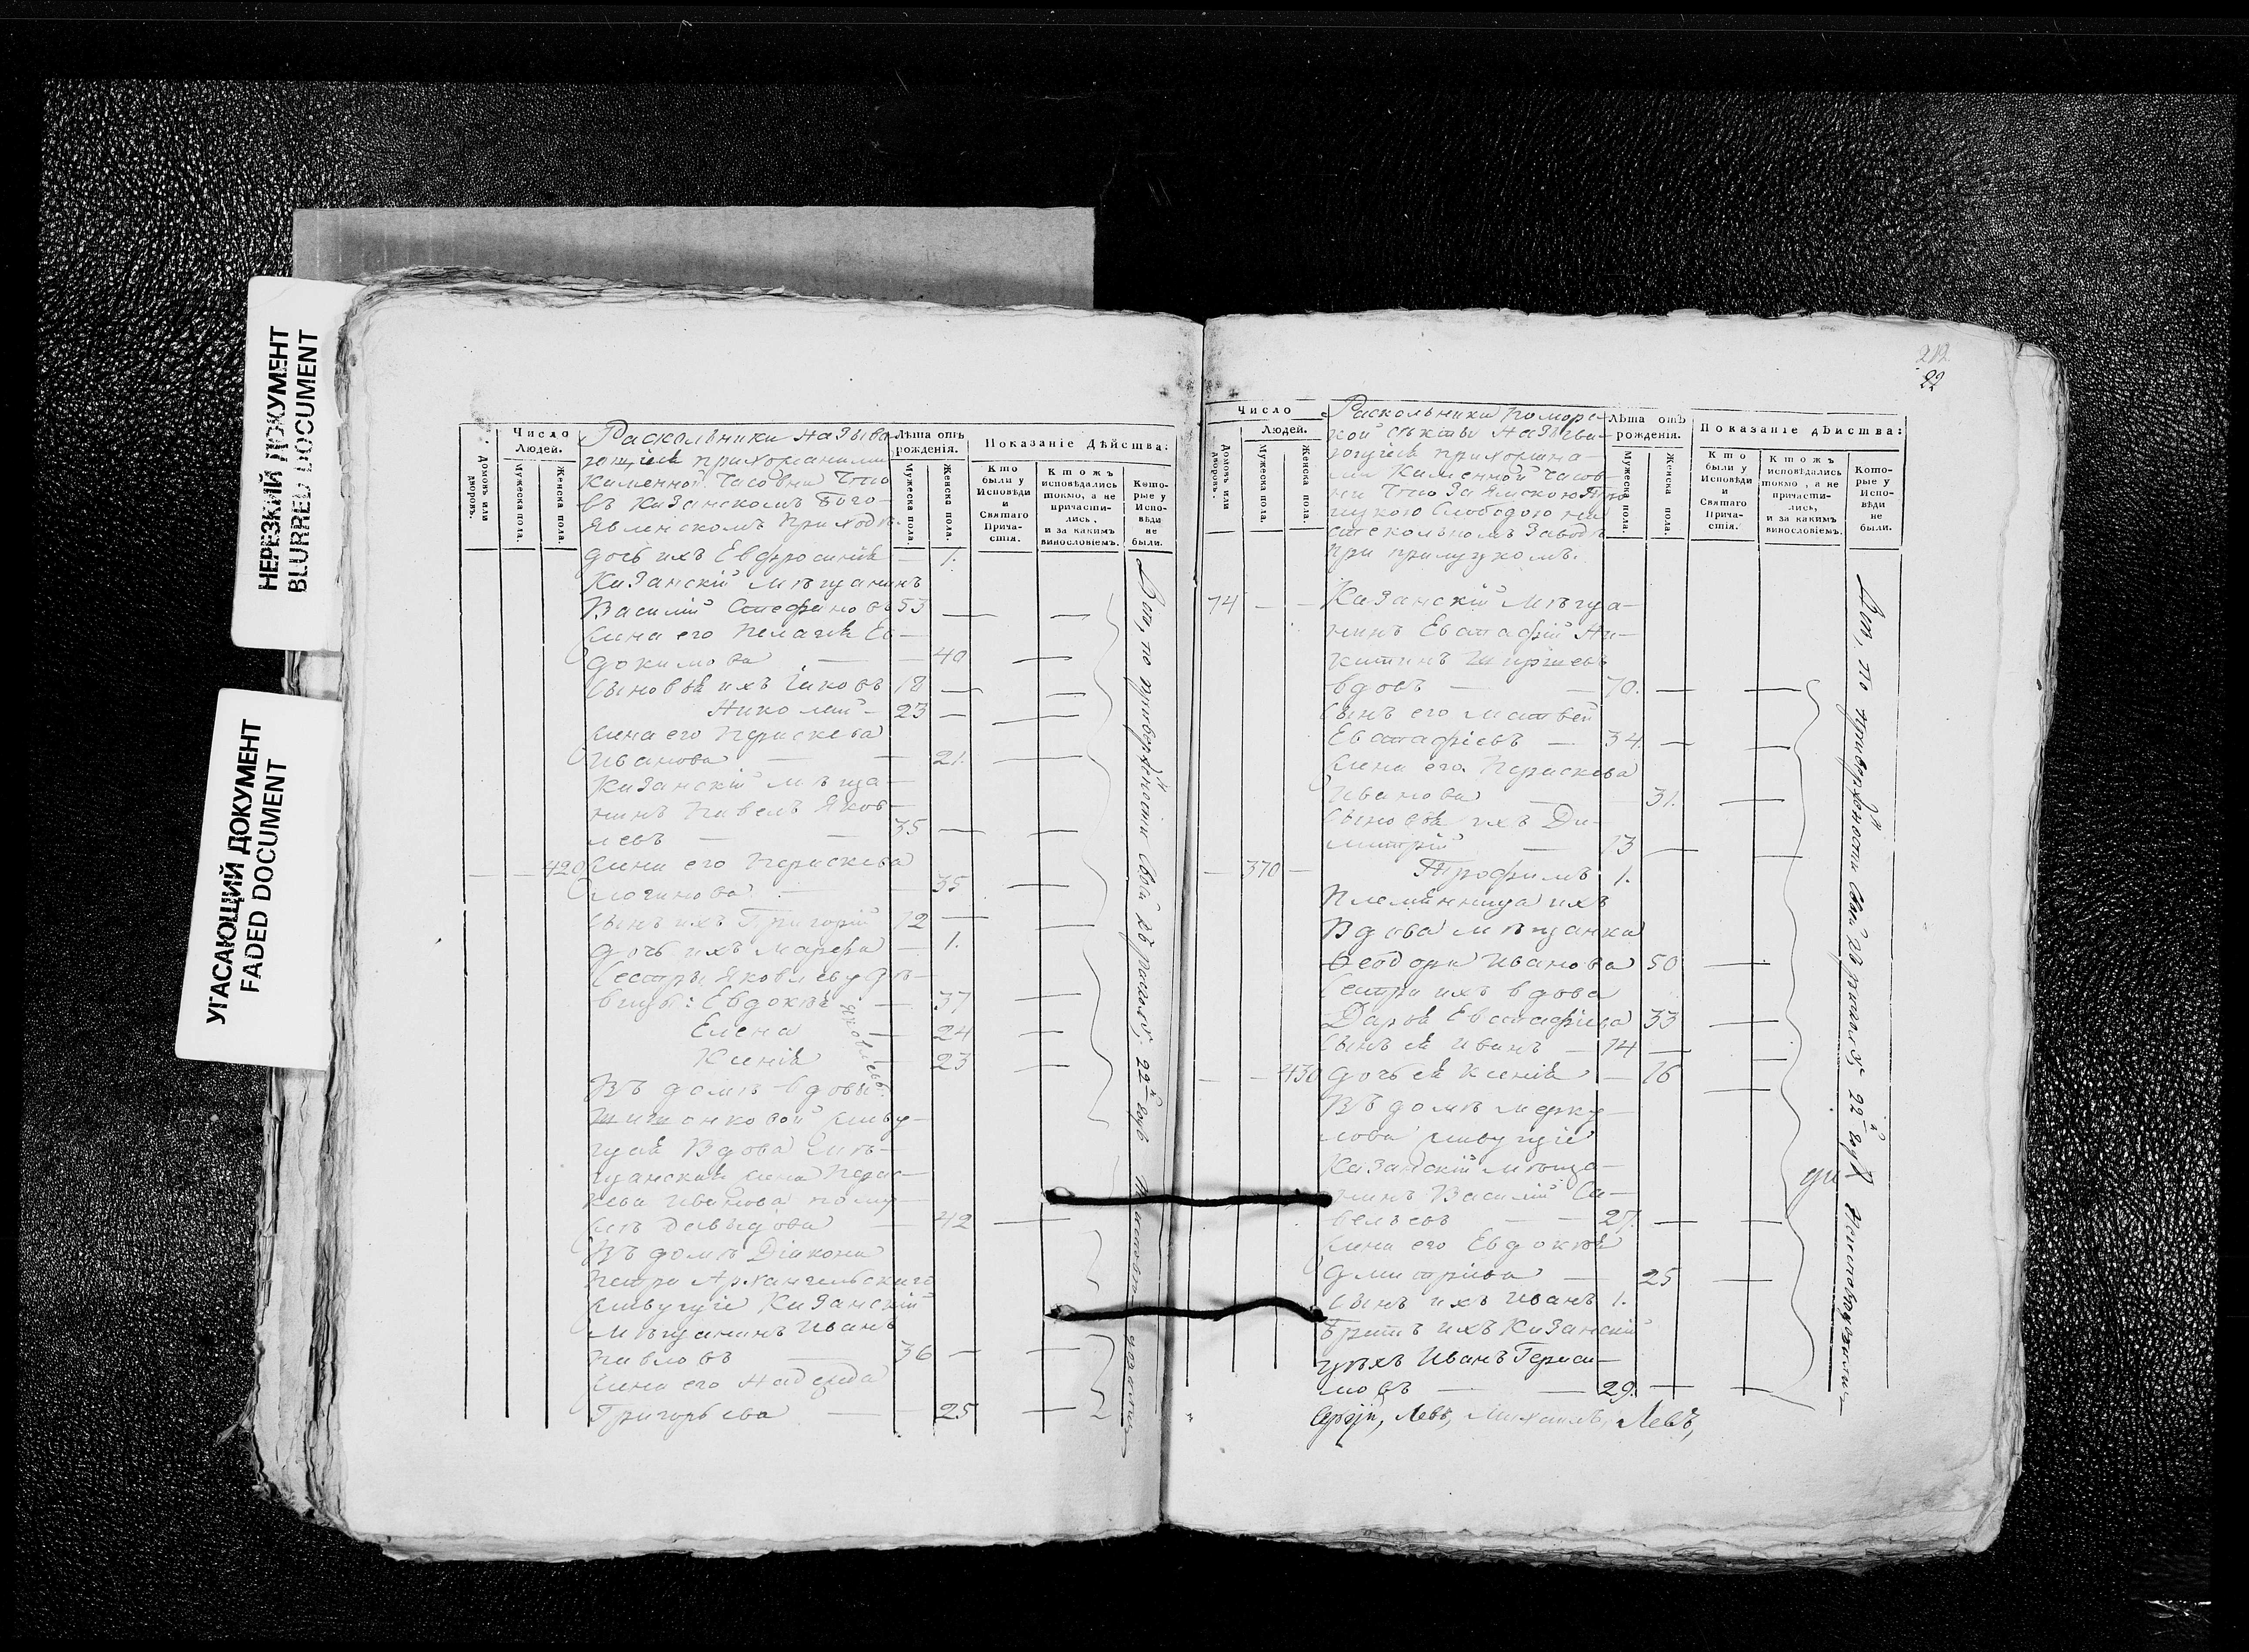 НЕРЕЗКИЙ ДОКУМЕНТ
BLURRED DOCUMENT
УГАСАЮЩИЙ ДОКУМЕНТ
FADED DOCUMENT
Домовъ или дворовъ.
Число Людей.
Мужеска пола.
Женска пола.
Раскольники называ
ющіеся прихожанами
каменной часовни что
въ Казанскомъ Бого-
явленскомъ приходѣ.
Лѣта отъ рождения.
Мужеска пола.
Женска пола.
Показаніе Дѣйства:
Кто были у Исповѣди и Святаго Прича-стія.
Ктожъ исповѣдались токмо, а не причасти-лись, и за какимъ винословіемъ.
Кото-рые у Испо-вѣди не были.
дочь ихъ Евфросинія — 1.
Казанскій мѣщанинъ
Василій Стефановъ 53
жена его Пелагія Ев-
докимова — 40
сыновья ихъ Іаковъ 18
Николай — 23
жена его Параскева
Иванова — 21.
Казанскій мѣща-
нинъ Павелъ Яков-
левъ — 35
420 жена его Параскева
Логинова — 35
сынъ ихъ Григорій 12
дочь ихъ Марфа — 1.
Сестры Яковлеву дѣ-
вицы: Евдокія — 37
Елена — 24
Ксенія — 23
Яковлевы
Въ домѣ вдовы
Шишонковой живу-
щая вдова мѣ-
щанская жена Парас-
кева Иванова по му-
жѣ Давыдова — 42
Въ домѣ Діакона
Петра Архангельскаго
живущіе Казанскій
мѣщанинъ Иванъ
Павловъ — 36
жена его Надежда
Григорьева — 25
Вси, по приверженности своей къ расколу, 22й годъ
212
22
Домовъ или дворовъ.
Число Людей.
Мужеска пола.
Женска пола.
Раскольники помор-
кой секты называ-
ющіеся прихожана-
ми каменной часов-
ни что за Ямскою
слободою на
стекольномъ заводѣ
при
Лѣта отъ рождения.
Мужеска пола.
Женска пола.
Показаніе дѣиства:
Кто были у Исповѣди и Святаго Прича-стія.
Ктожъ исповѣдались токмо, а не причасти-лись, и за какимъ винословіемъ.
Кото-рые у Испо-вѣди не были.
74 — — Казанскій мѣща-
нинъ Евстафій Ни-
китинъ
вдовъ — 70.
сынъ его Матвей
Евстафіевъ — 34.
жена его Параскева
Иванова — 31.
сыновья ихъ Ди-
митрій — 13
— 370 — Трофимъ 1.
Племянница ихъ
Вдова мѣщанка
Ѳеодора Иванова 50
Сестра ихъ вдова
Дарья Евстафіева 33
сынъ ея Иванъ — 14
— — 430 дочь ея Ксенія — 16
Въ домѣ Мерку-
лова живущіе
Казанскій мѣща-
нинъ Василій Са-
вельевъ — 27.
жена его Евдокія
Дмитріева — 25
сынъ ихъ Иванъ 1.
Братъ ихъ Казанскій
цѣхъ Иванъ Гераси-
мовъ — 29.
Вси, по приверженности своей къ расколу 22й годъ
Сергій, Левъ, Михаилъ, Левъ,